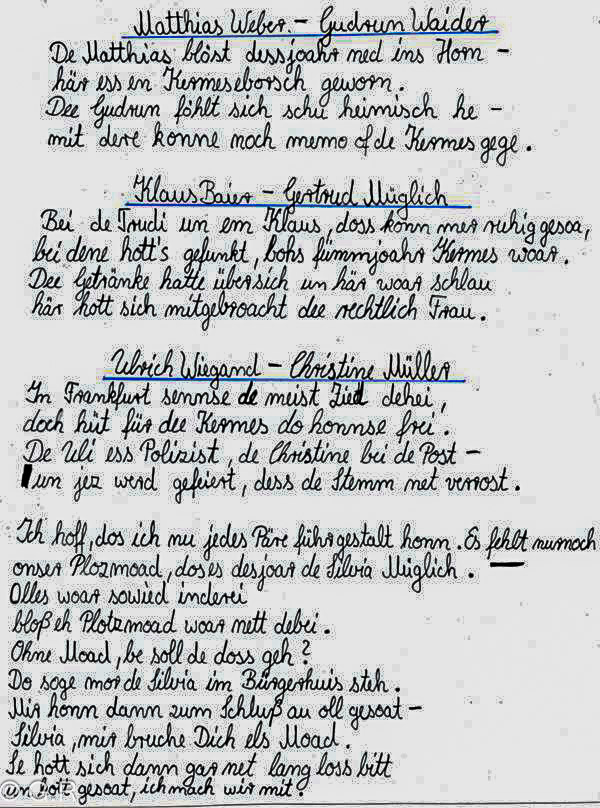 Matthias Weber - Gudrun Waider
De Matthias blöst dessjoahr ned ins Horn -
här ess en Kermeseborsch geworn.
Dee Gudrun föhlt sich schu heimisch he -
mit dere konne noch memo of de Kermes gege.
Klaus Baier - Gertrud Müglich
Bei de Trudi un em Klaus, doss konn mer ruhig gesoa,
bei dene hott's gefunkt, bohs fümmjoahr Kermes woar.
Dee Getränke hatte übersich un här woar schlau
här hott sich mitgebroacht dee rechtlich Frau.
Ulrich Wiegand - Christine Müller
In Frankfurt sennse de meist Zied dehei,
doch hüt für dee Kermes do honnse frei.
De Uli ess Polizist, de Christine bei de Post -
un jez werd gefeiert, dess de Stemm net verrost.
Ich hoff, dos ich nu jedes Päre führgestalt honn. Es fehlt nurnoch
onser Plozmoad, dos es desjoar de Silvia Müglich.
Olles woar sowied inderei
bloß eh Plotzmoad woar nett debei.
Ohne Moad, be soll de doss geh?
Do soge mor de Silvia im Bürgerhuis steh.
Mir honn dann zum Schluß au oll gesoat -
Silvia, mir bruche Dich els Moad.
Se hott sich dann gar net lang loss bitt
un hott gesoat, ich mach wir mit!